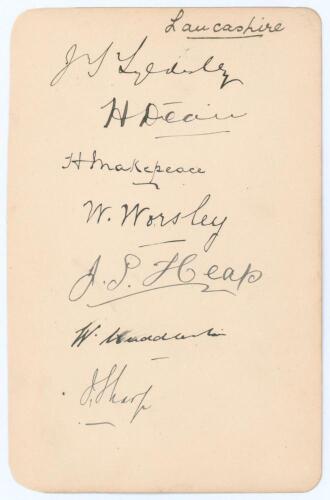 Lancashire
J T Tyldesley
H Dean
H Makepeace
W. Worsley
J. S. Heap
W. Huddleston
J Sharp